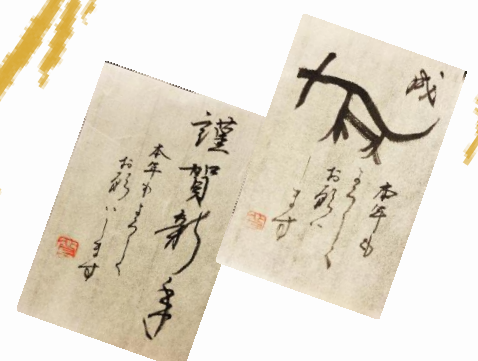 謹賀新年
本年もよろしく
お願いします
戌
本年も
よろしく
お願い
します